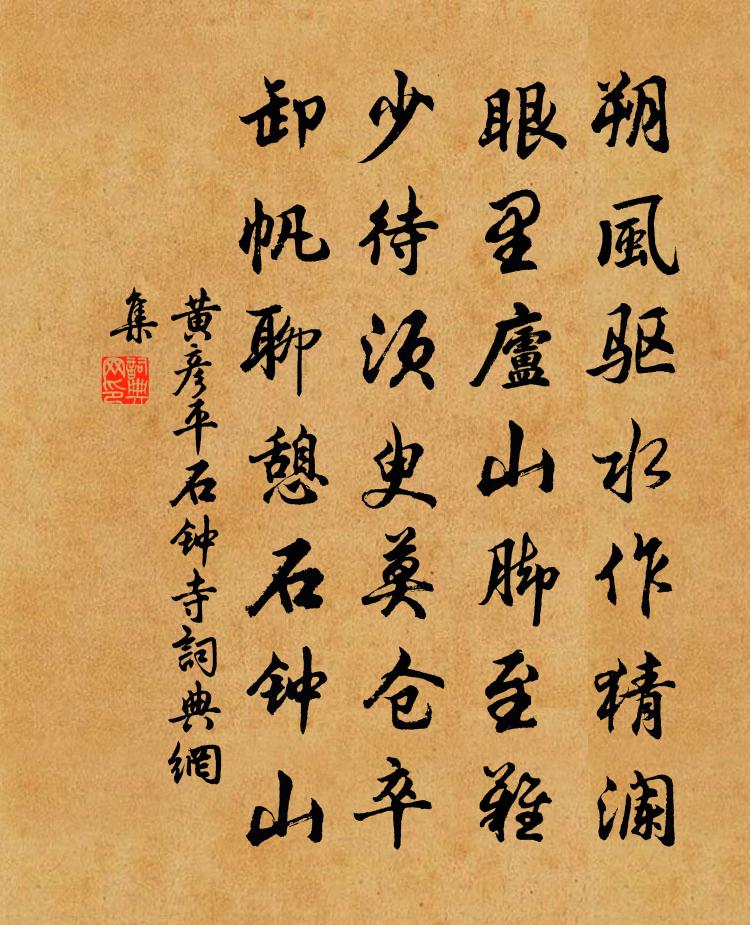 朔風驱水作猜澜
眼里廬山脚至難
少待须臾莫仓卒
卸帆聊憩石钟山
黄彦平石钟寺詞典網
集
詞典网印